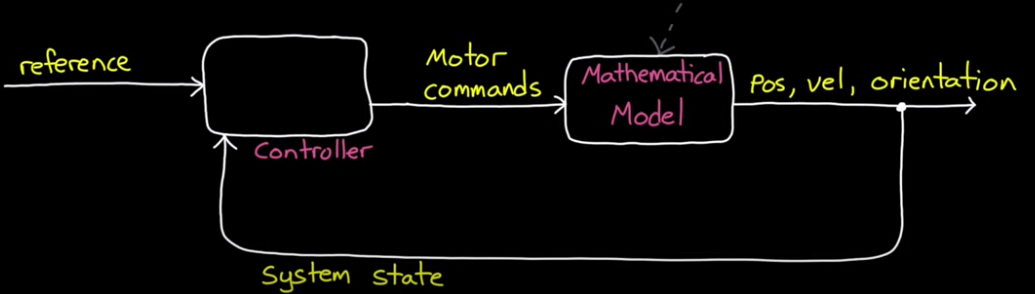 reference
Controller
Motor
commands
Mathematical
Model
Pos, vel, orientation
System state